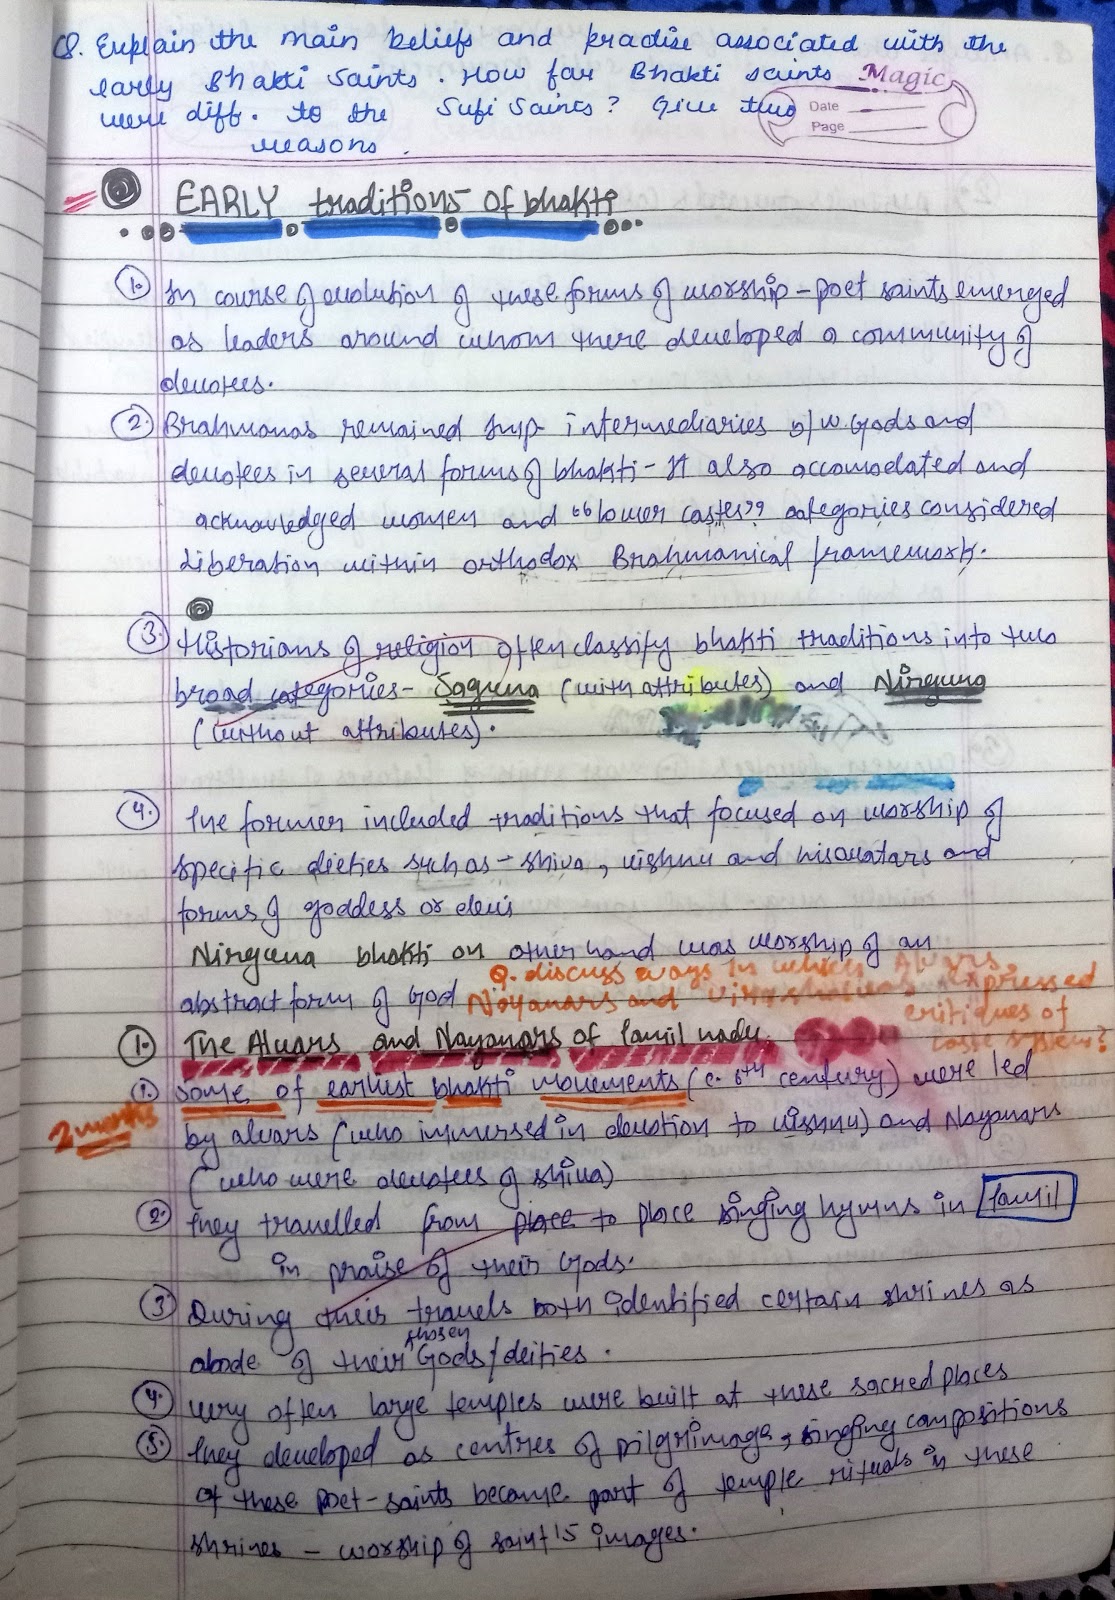 Q. Explain the main beliefs and pradise associated with the
early Bhakti saints. How far Bhakti saints
were diff. to the Sufi Saints? Give two
reasons.
Magic
Date
Page
EARLY traditions of bhakti
1. In course of evolution of these forms of worship - poet saints emerged
as leaders around whom there developed a community of
devotees.
2. Brahmanas remained Imp. intermediaries b/w Gods and
devotees in several forms of bhakti - It also accomodated and
acknowledged women and "lower castes" categories considered
liberation within orthodox Brahmanical framework.
3. Historians of religion often classify bhakti traditions into two
broad categories - Saguna (with attributes) and Nirguna
(without attributes).
4. The former included traditions that focused on worship of
specific dieties such as - shiva, vishnu and his avatars and
forms of goddess or devi
Nirguna bhakti on other hand was worship of an
abstract form of God
Q. discuss ways in which Alvars,
Nayanars and expressed
critiques of
caste system?
1. The Alvars and Nayanars of Tamil nadu
1. Some of earliest bhakti movements (c. 6th century) were led
2 marks
by alvars (who immersed in devotion to vishnu) and Nayanars
(who were devotees of shiva)
2. They travelled from place to place singing hymns in Tamil
in praise of their Gods.
3. During their travels both identified certain shrines as
abode of their chosen Gods/deities.
4. very often large temples were built at these sacred places
5. They developed as centres of pilgrimage, singing compositions
of these poet-saints became part of temple rituals in these
shrines - worship of saint's images.